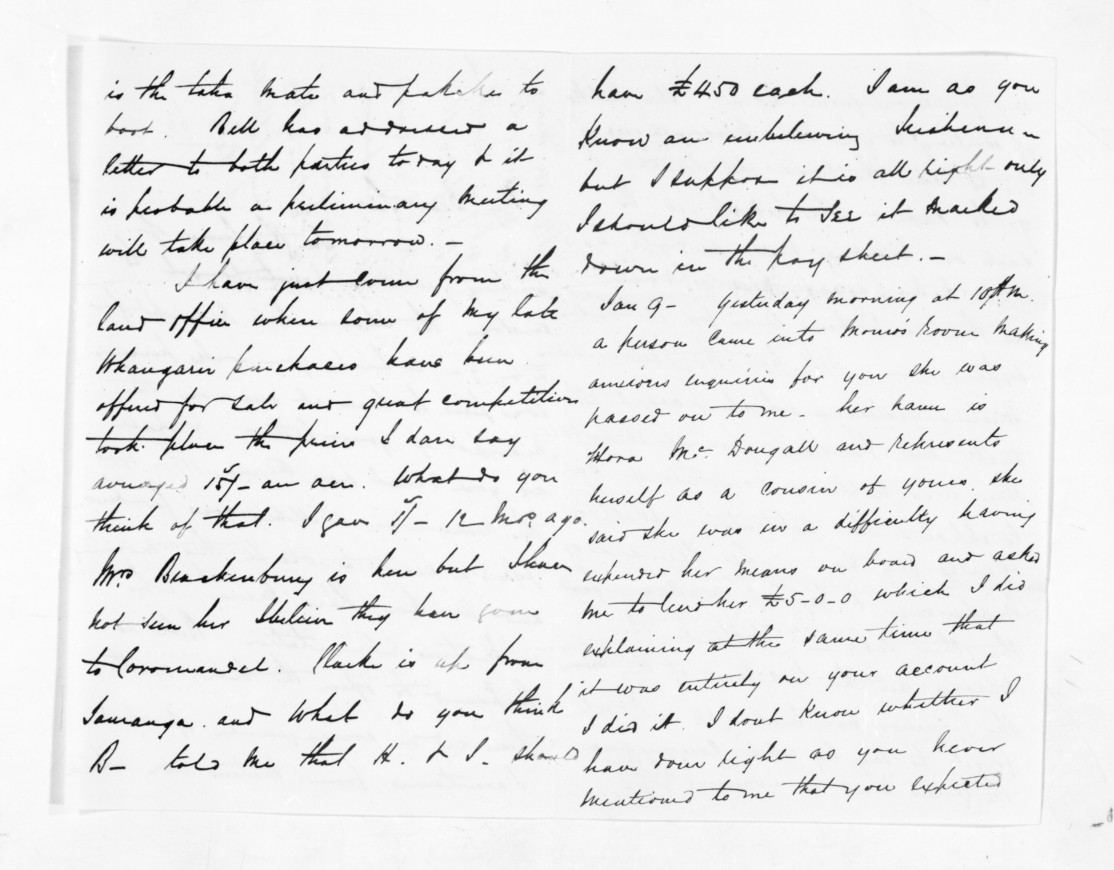 is the take mate and pakeke to
boot. Bell has addressed a
letter to both parties today & it
is probable a preliminary meeting
will take place tomorrow. –
I have just come from the
land office when some of my late
Whangarei purchases have been
offered for sale and great competition
took place the prices I dare say
averaged 15/- an acre. What do you
think of that. I gave 5/- 12 Mos. ago.
Mrs Brackenbury is here but I have
not seen her I believe they have gone
to Coromandel. Clarke is up from
Tauranga. and what do you think
B– told me that H. & I. should
have £450 each. I am as you
know an unbelieving
but I suppose it is all right only
I should like to see it marked
down in the pay sheet. –
Jan 9 – Yesterday morning at 10 A.M.
a person came into Monro's Room making
anxious inquiries for you she was
passed on to me – her name is
Flora McDougall and represents
herself as a cousin of yours. she
said she was in a difficulty having
expended her means on board and asked
me to lend her £5-0-0 which I did
explaining at the same time that
it was entirely on your account
I did it. I dont know whether I
have done right as you never
mentioned to me that you expected